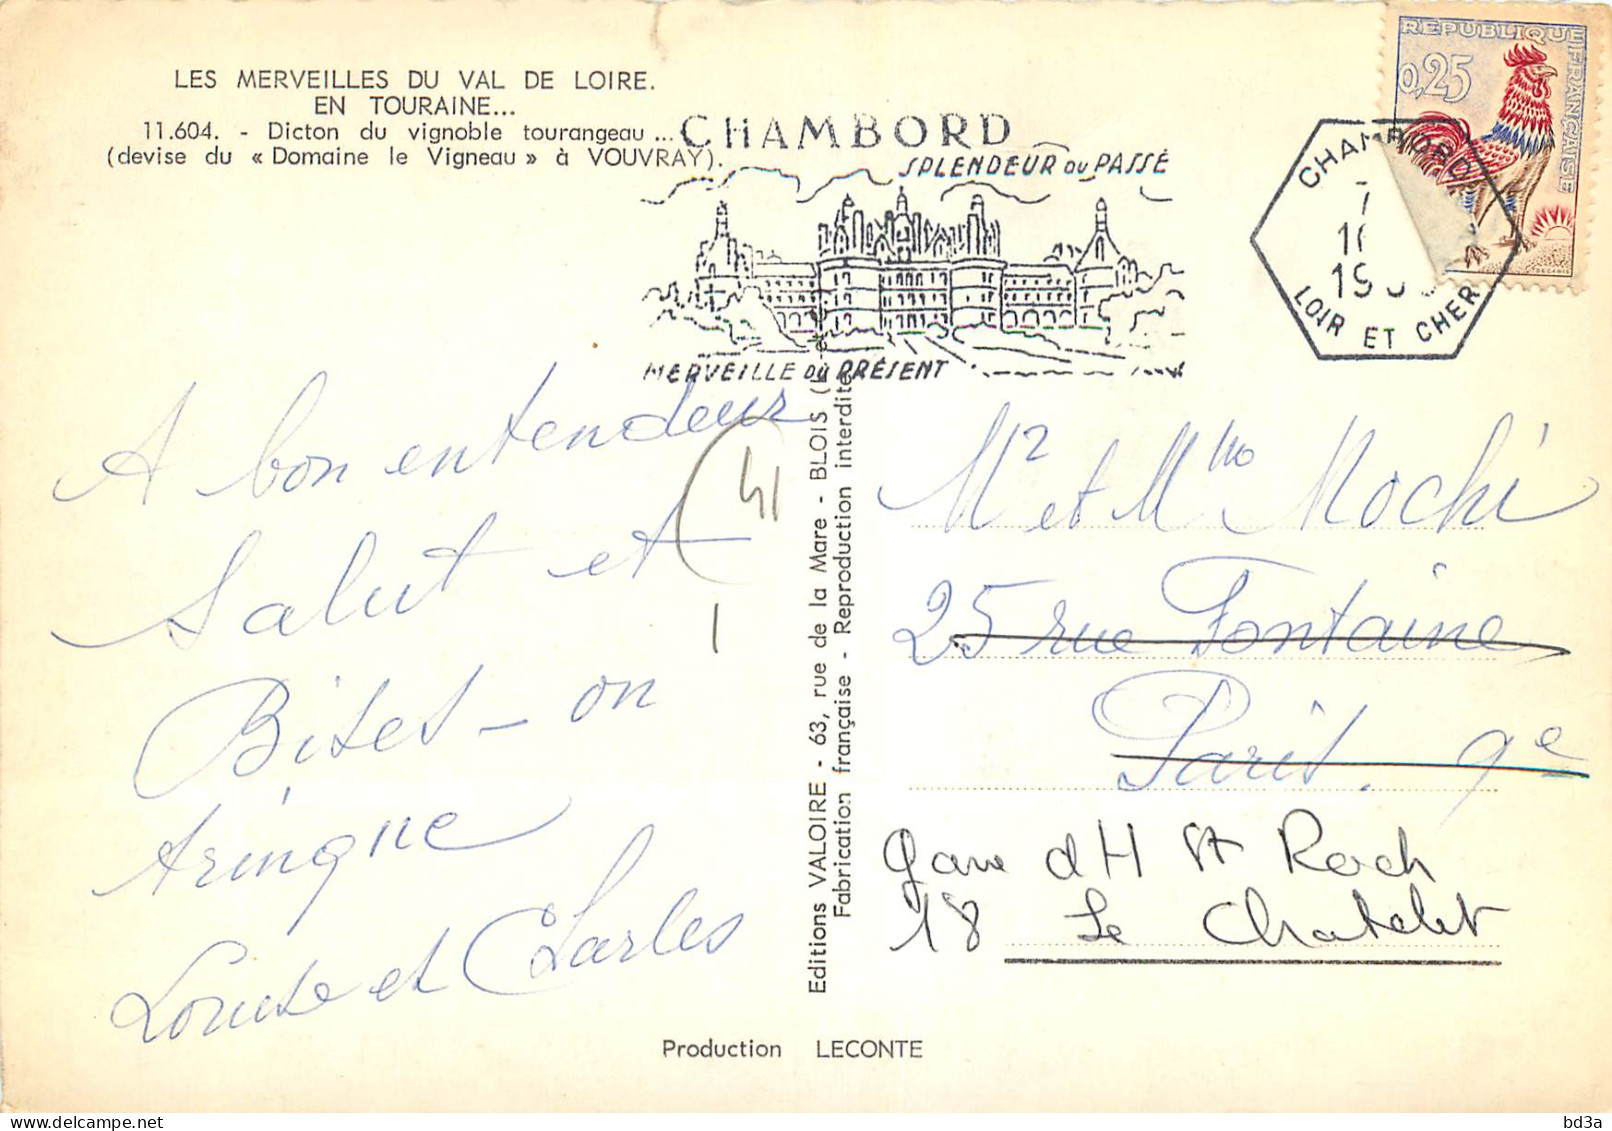 LES MERVEILLES DU VAL DE LOIRE.
EN TOURAINE...
11.604. - Dicton du vignoble tourangeau ...
(devise du « Domaine le Vigneau » à VOUVRAY).
CHAMBORD
SPLENDEUR DU PASSÉ
MERVEILLE DU PRÉSENT
CHAMBORD
LOIR ET CHER
REPUBLIQUE FRANÇAISE
0,25
A bon entendeur
Salut et
Bises - on
tringue
Louise et Charles
Editions VALOIRE - 63, rue de la Mare - BLOIS
Fabrication française - Reproduction interdite
Mr et Mme Mochi
25 rue Fontaine
Paris. 9e
gare d H St Roch
18 Le Chatelet
Production LECONTE
bd3a